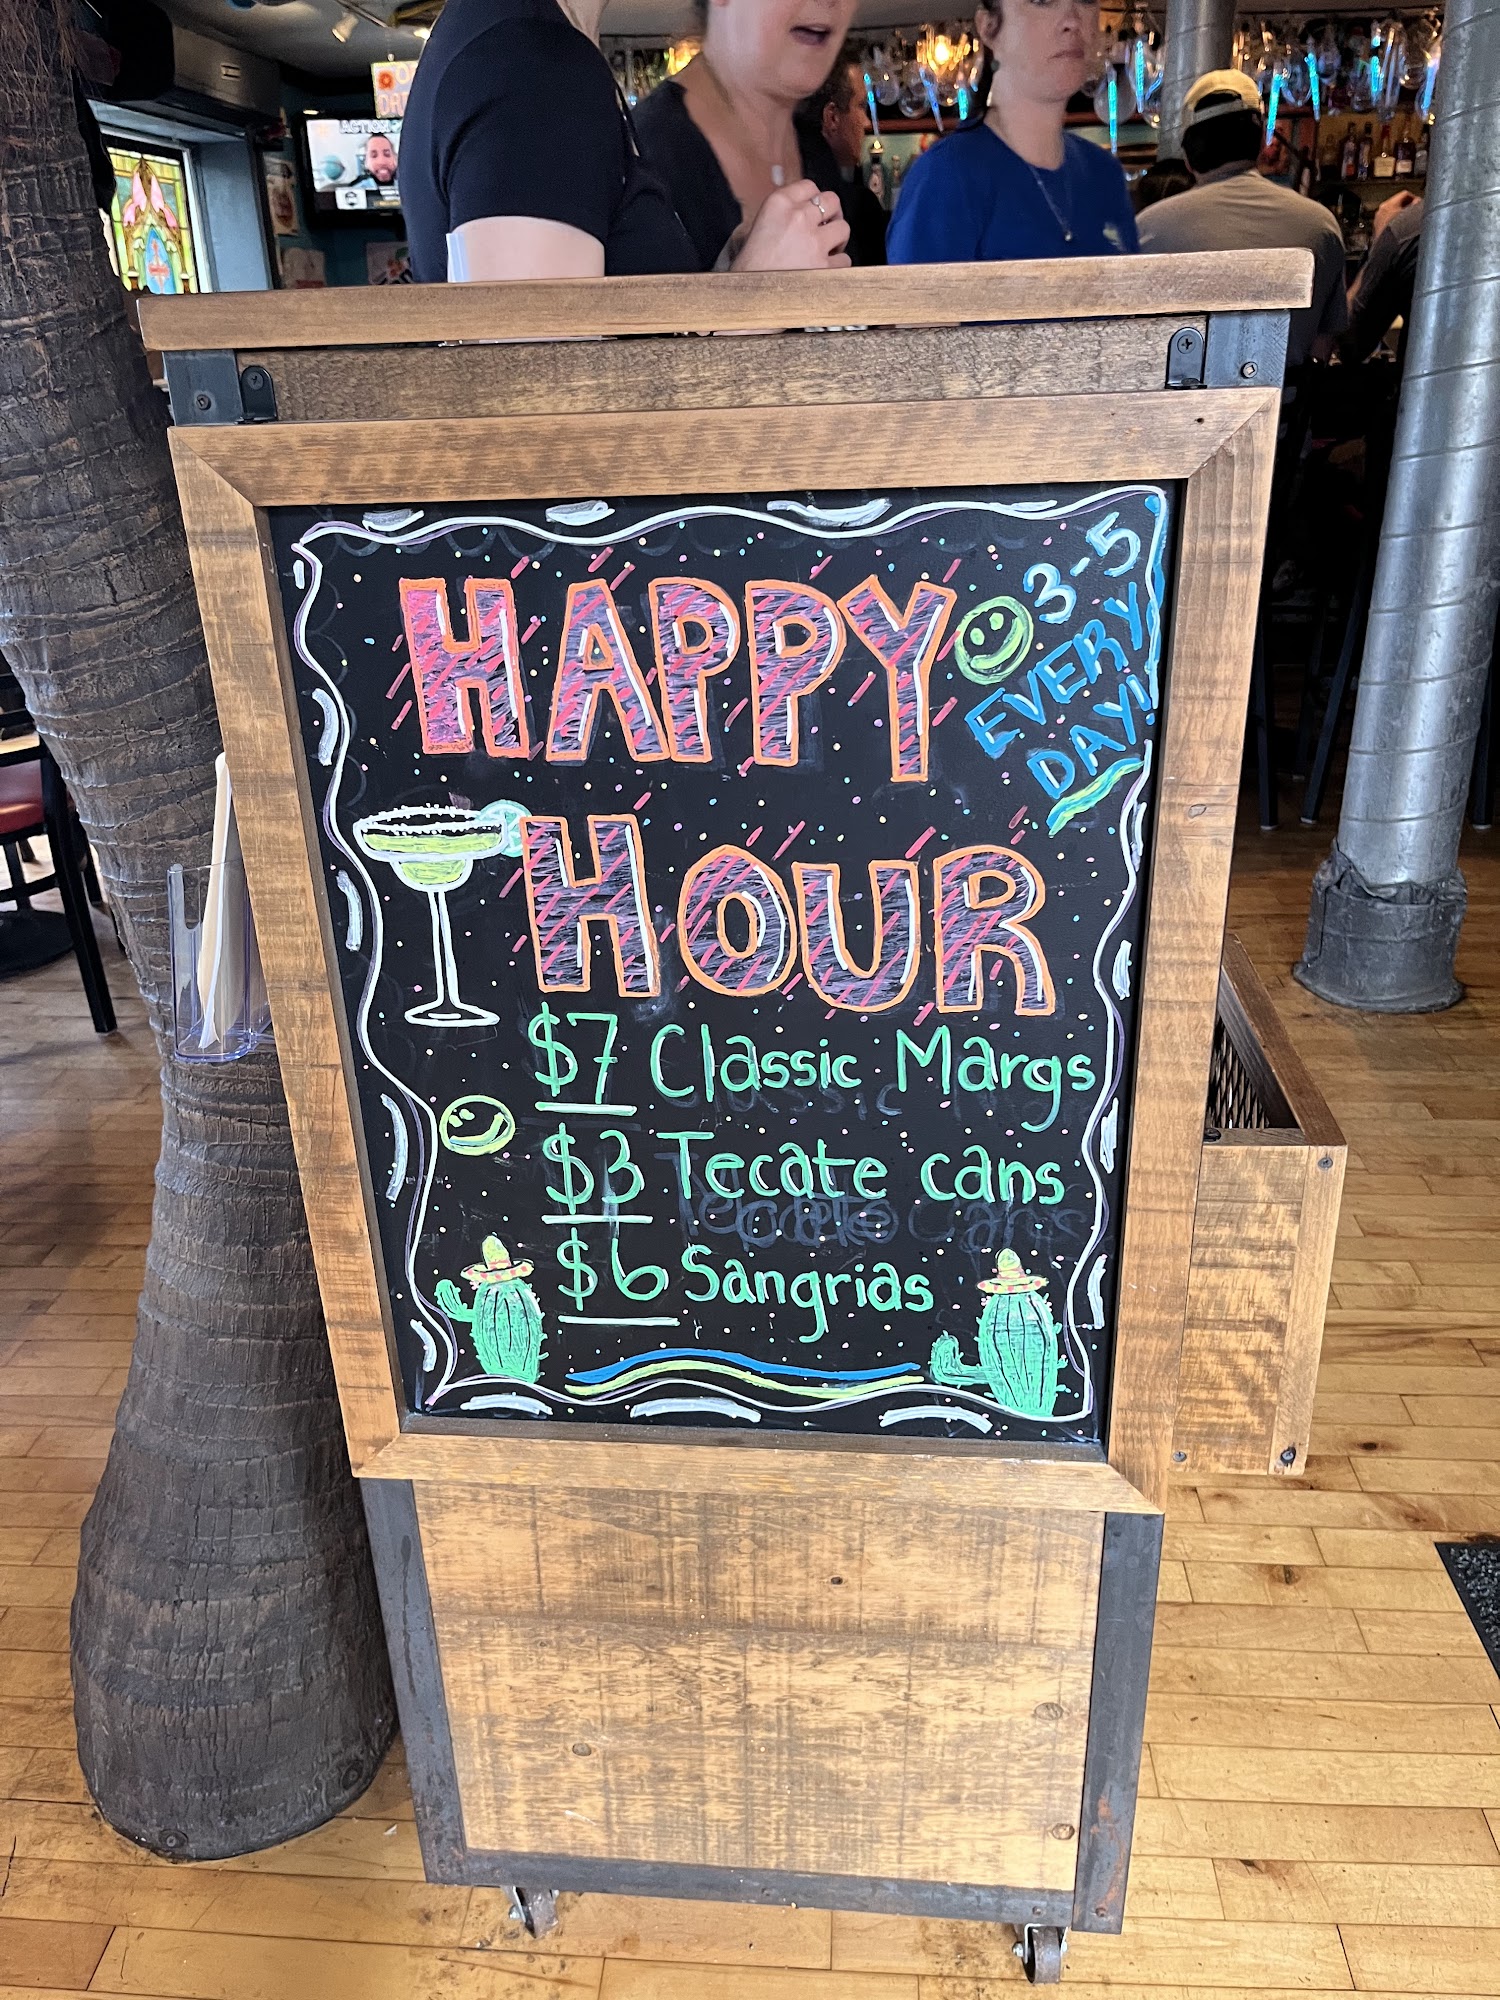 HAPPY
3-5
EVERY
DAY!
HOUR
$7 Classic Margs
$3 Tecate cans
$6 Sangrias